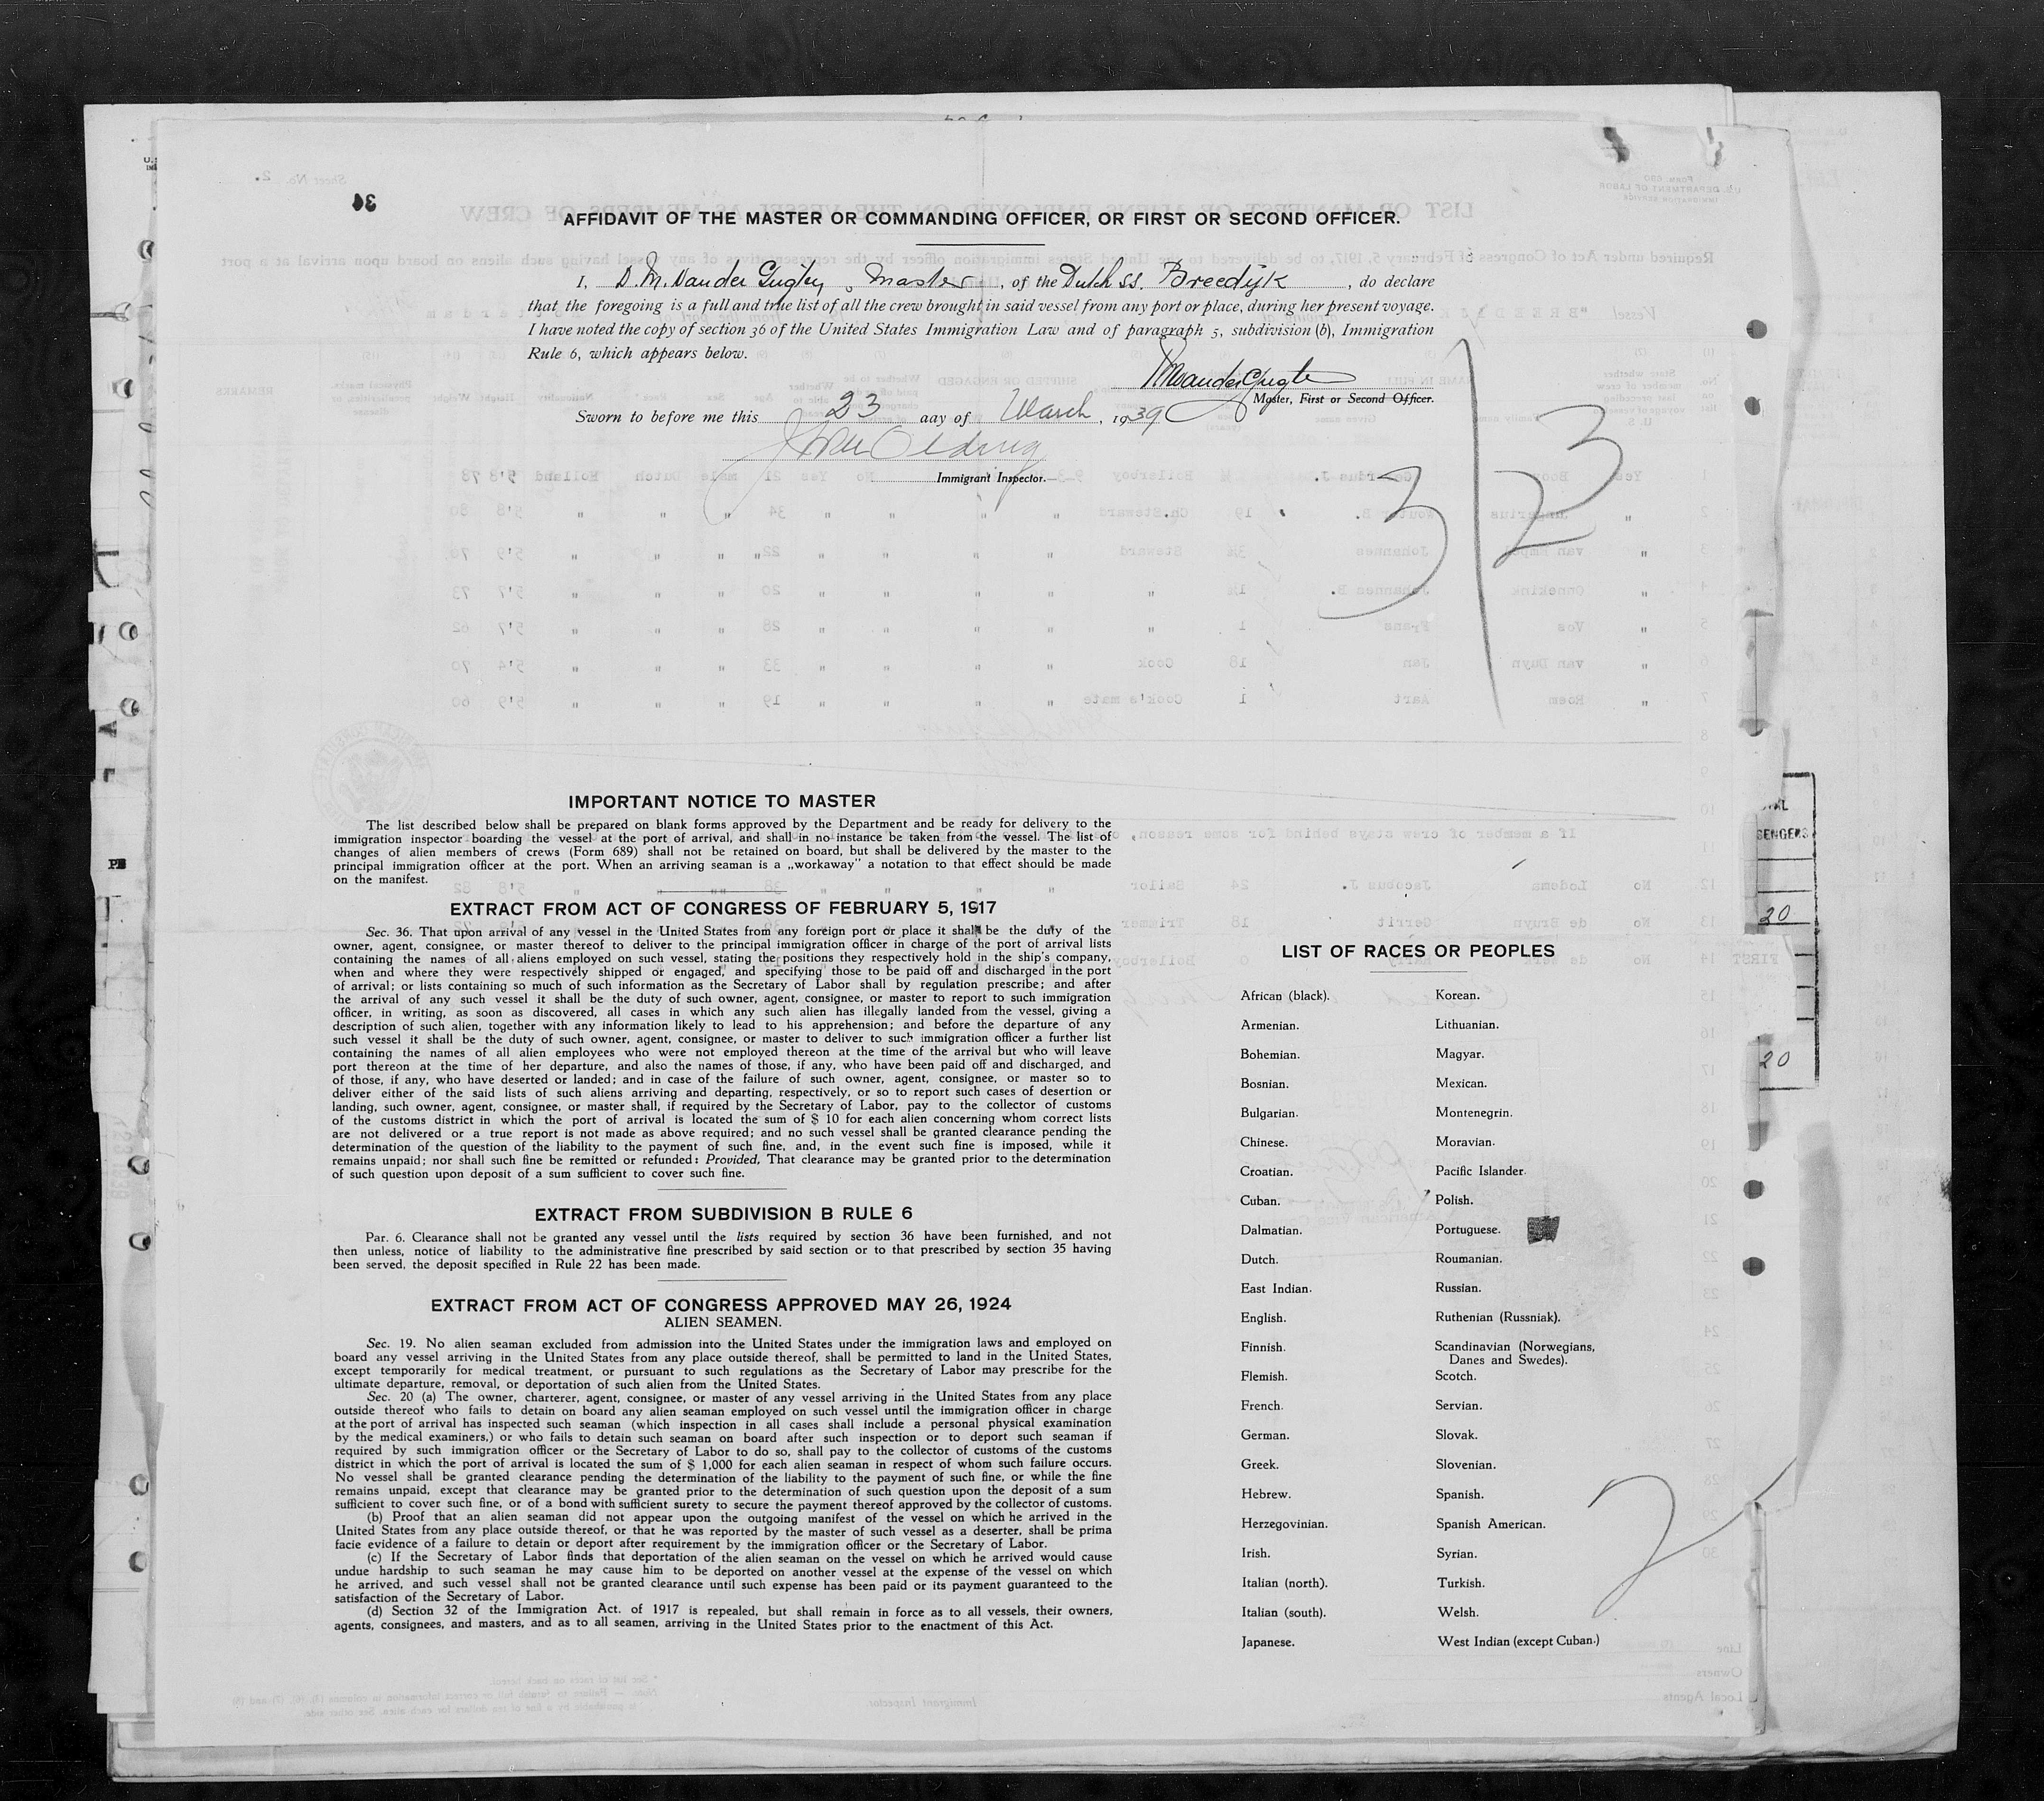 AFFIDAVIT OF THE MASTER OR COMMANDING OFFICER, OR FIRST OR SECOND OFFICER.
I, D. M. Vander Gugten, Master, of the Dutch SS. Breedijk, do declare
that the foregoing is a full and true list of all the crew brought in said vessel from any port or place, during her present voyage.
I have noted the copy of section 36 of the United States Immigration Law and of paragraph 5, subdivision (b), Immigration
Rule 6, which appears below.
Master, First or Second Officer.
Sworn to before me this 23 day of March, 1939
Immigrant Inspector.
3/23
IMPORTANT NOTICE TO MASTER
The list described below shall be prepared on blank forms approved by the Department and be ready for delivery to the
immigration inspector boarding the vessel at the port of arrival, and shall in no instance be taken from the vessel. The list of
changes of alien members of crews (Form 689) shall not be retained on board, but shall be delivered by the master to the
principal immigration officer at the port. When an arriving seaman is a „workaway" a notation to that effect should be made
on the manifest.
EXTRACT FROM ACT OF CONGRESS OF FEBRUARY 5, 1917
Sec. 36. That upon arrival of any vessel in the United States from any foreign port or place it shall be the duty of the
owner, agent, consignee, or master thereof to deliver to the principal immigration officer in charge of the port of arrival lists
containing the names of all aliens employed on such vessel, stating the positions they respectively hold in the ship's company,
when and where they were respectively shipped or engaged, and specifying those to be paid off and discharged in the port
of arrival; or lists containing so much of such information as the Secretary of Labor shall by regulation prescribe; and after
the arrival of any such vessel it shall be the duty of such owner, agent, consignee, or master to report to such immigration
officer, in writing, as soon as discovered, all cases in which any such alien has illegally landed from the vessel, giving a
description of such alien, together with any information likely to lead to his apprehension; and before the departure of any
such vessel it shall be the duty of such owner, agent, consignee, or master to deliver to such immigration officer a further list
containing the names of all alien employees who were not employed thereon at the time of the arrival but who will leave
port thereon at the time of her departure, and also the names of those, if any, who have been paid off and discharged, and
of those, if any, who have deserted or landed; and in case of the failure of such owner, agent, consignee, or master so to
deliver either of the said lists of such aliens arriving and departing, respectively, or so to report such cases of desertion or
landing, such owner, agent, consignee, or master shall, if required by the Secretary of Labor, pay to the collector of customs
of the customs district in which the port of arrival is located the sum of $ 10 for each alien concerning whom correct lists
are not delivered or a true report is not made as above required; and no such vessel shall be granted clearance pending the
determination of the question of the liability to the payment of such fine, and, in the event such fine is imposed, while it
remains unpaid; nor shall such fine be remitted or refunded: Provided, That clearance may be granted prior to the determination
of such question upon deposit of a sum sufficient to cover such fine.
EXTRACT FROM SUBDIVISION B RULE 6
Par. 6. Clearance shall not be granted any vessel until the lists required by section 36 have been furnished, and not
then unless, notice of liability to the administrative fine prescribed by said section or to that prescribed by section 35 having
been served, the deposit specified in Rule 22 has been made.
EXTRACT FROM ACT OF CONGRESS APPROVED MAY 26, 1924
ALIEN SEAMEN.
Sec. 19. No alien seaman excluded from admission into the United States under the immigration laws and employed on
board any vessel arriving in the United States from any place outside thereof, shall be permitted to land in the United States,
except temporarily for medical treatment, or pursuant to such regulations as the Secretary of Labor may prescribe for the
ultimate departure, removal, or deportation of such alien from the United States.
Sec. 20 (a) The owner, charterer, agent, consignee, or master of any vessel arriving in the United States from any place
outside thereof who fails to detain on board any alien seaman employed on such vessel until the immigration officer in charge
at the port of arrival has inspected such seaman (which inspection in all cases shall include a personal physical examination
by the medical examiners,) or who fails to detain such seaman on board after such inspection or to deport such seaman if
required by such immigration officer or the Secretary of Labor to do so, shall pay to the collector of customs of the customs
district in which the port of arrival is located the sum of $ 1,000 for each alien seaman in respect of whom such failure occurs.
No vessel shall be granted clearance pending the determination of the liability to the payment of such fine, or while the fine
remains unpaid, except that clearance may be granted prior to the determination of such question upon the deposit of a sum
sufficient to cover such fine, or of a bond with sufficient surety to secure the payment thereof approved by the collector of customs.
(b) Proof that an alien seaman did not appear upon the outgoing manifest of the vessel on which he arrived in the
United States from any place outside thereof, or that he was reported by the master of such vessel as a deserter, shall be prima
facie evidence of a failure to detain or deport after requirement by the immigration officer or the Secretary of Labor.
(c) If the Secretary of Labor finds that deportation of the alien seaman on the vessel on which he arrived would cause
undue hardship to such seaman he may cause him to be deported on another vessel at the expense of the vessel on which
he arrived, and such vessel shall not be granted clearance until such expense has been paid or its payment guaranteed to the
satisfaction of the Secretary of Labor.
(d) Section 32 of the Immigration Act. of 1917 is repealed, but shall remain in force as to all vessels, their owners,
agents, consignees, and masters, and as to all seamen, arriving in the United States prior to the enactment of this Act.
LIST OF RACES OR PEOPLES
African (black).
Armenian.
Bohemian.
Bosnian.
Bulgarian.
Chinese.
Croatian.
Cuban.
Dalmatian.
Dutch.
East Indian.
English.
Finnish.
Flemish.
French.
German.
Greek.
Hebrew.
Herzegovinian.
Irish.
Italian (north).
Italian (south).
Japanese.
Korean.
Lithuanian.
Magyar.
Mexican.
Montenegrin.
Moravian.
Pacific Islander
Polish.
Portuguese.
Roumanian.
Russian.
Ruthenian (Russniak).
Scandinavian (Norwegians,
Danes and Swedes).
Scotch.
Servian.
Slovak.
Slovenian.
Spanish.
Spanish American.
Syrian.
Turkish.
Welsh.
West Indian (except Cuban.)
2
20
20